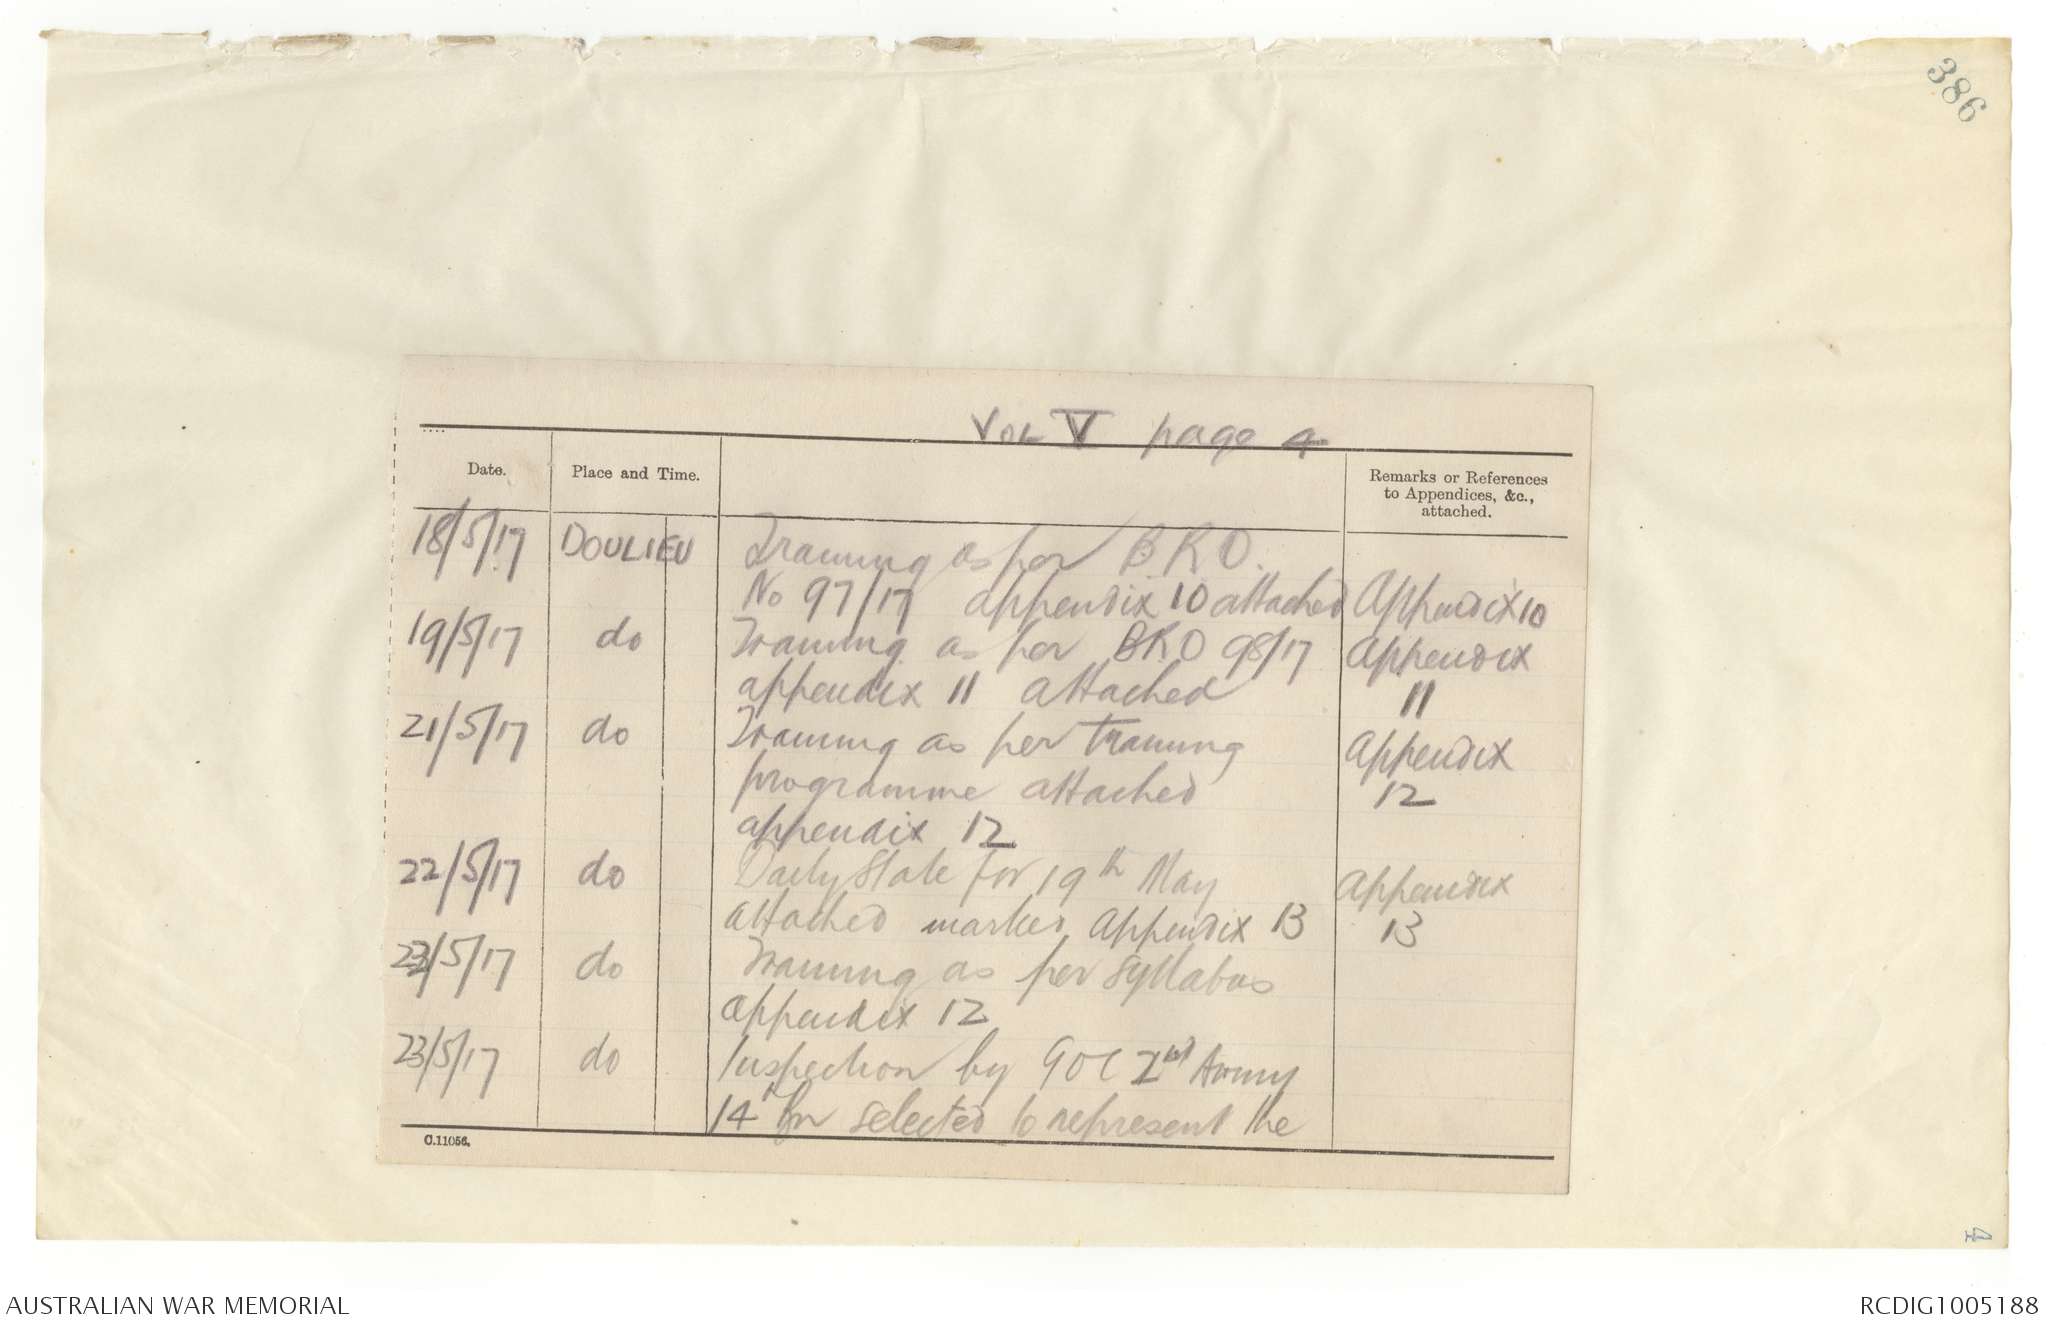 386
VOL V page 4
Date.
Place and Time.
Remarks or References
to Appendices, &c.,
attached.
18/5/17 DOULIEU Training as per B.R.O.
No 97/17 appendix 10 attached Appendix 10
19/5/17 do Training as per BRO 98/17 Appendix
appendix 11 attached 11
21/5/17 do Training as per training Appendix
programme attached 12
appendix 12
22/5/17 do Daily State for 19th May Appendix
attached marked Appendix 13 13
22/5/17 do Training as per syllabus
appendix 12
23/5/17 do Inspection by GOC 2nd Army
14th Bn selected to represent the
C.11056.
4
AUSTRALIAN WAR MEMORIAL
RCDIG1005188